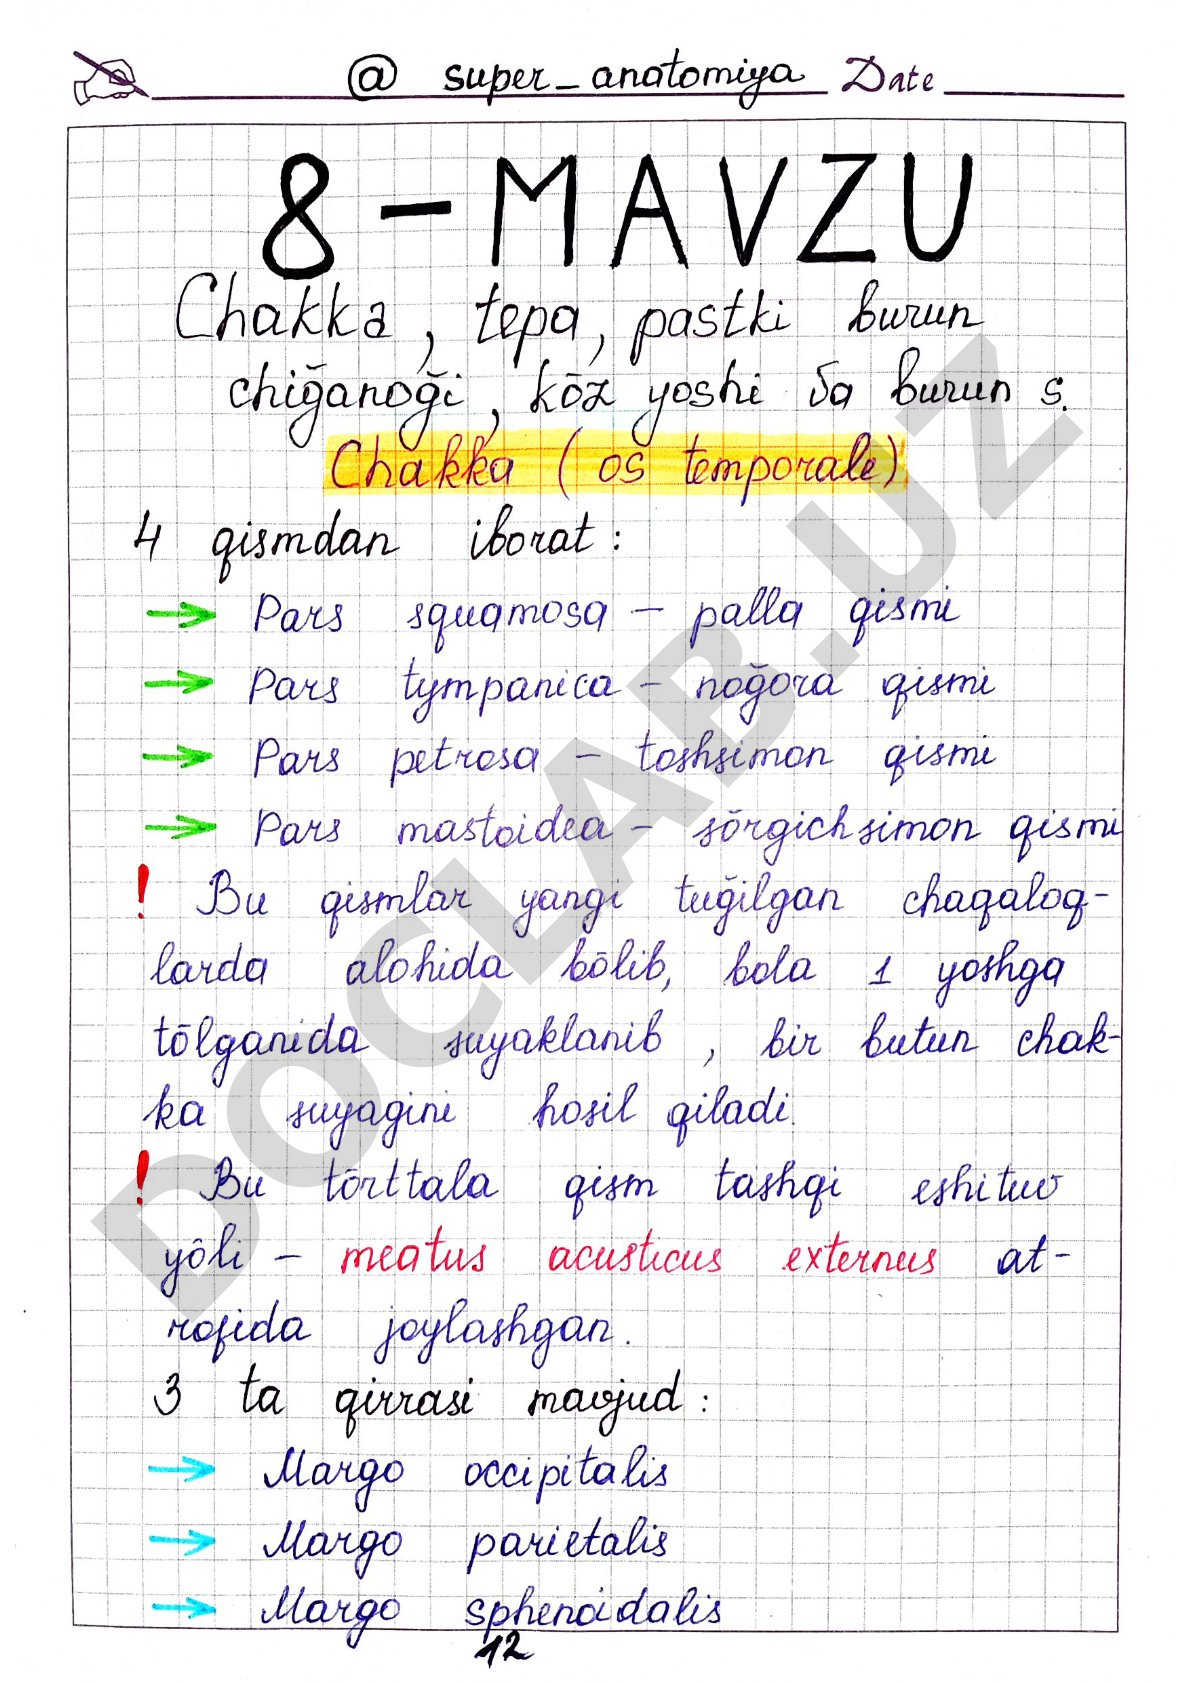 @ super_anatomiya Date
8-MAVZU
Chakka, tepa, pastki burun
chiğanoği, kōz yoshi va burun s.
Chakka (os temporale)
4 qismdan iborat:
→ Pars squamosa – palla qismi
→ Pars tympanica – noğora qismi
→ Pars petrosa – toshsimon qismi
→ Pars mastoidea – sōrgichsimon qismi
! Bu qismlar yangi tuğilgan chaqaloq-
larda alohida bōlib, bola 1 yoshga
tōlganida suyaklanib, bir butun chak-
ka suyagini hosil qiladi.
! Bu tōrttala qism tashqi eshituv
yōli – meatus acusticus externus at-
rofida joylashgan.
3 ta qirrasi mavjud:
→ Margo occipitalis
→ Margo parietalis
→ Margo sphenoidalis
12
DOCLAB.UZ